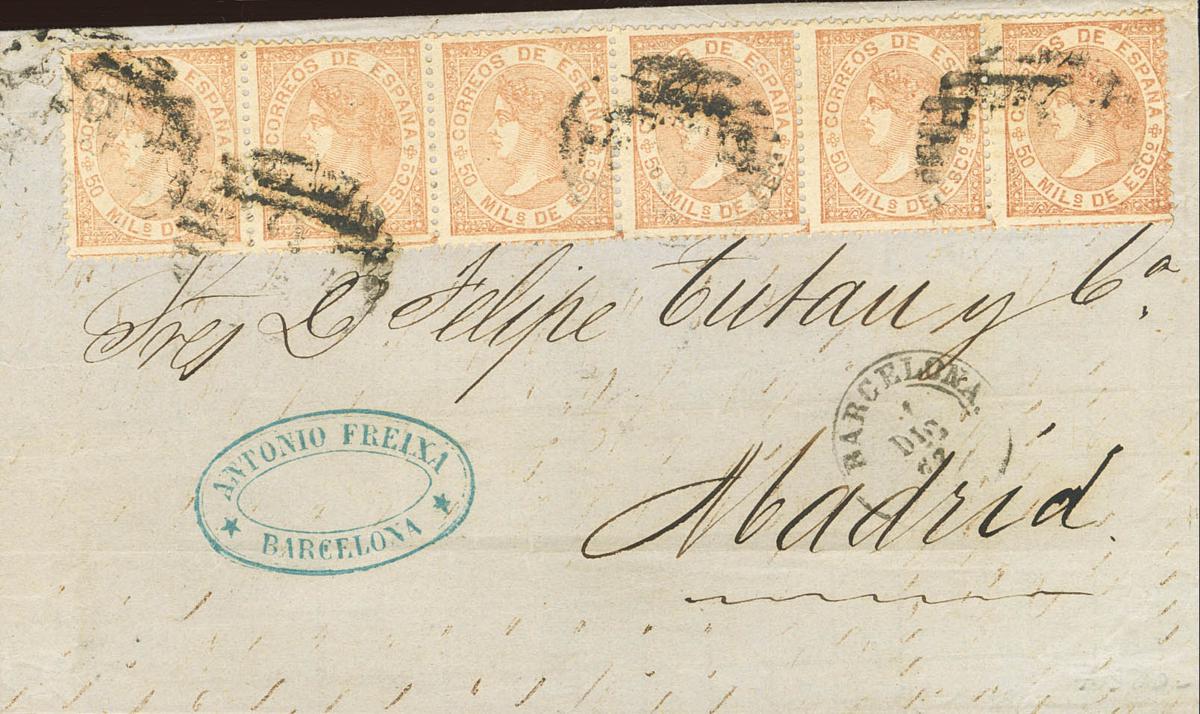 CORREOS DE ESPAÑA
50 MILS DE ESCO
CORREOS DE ESPAÑA
50 MILS DE ESCO
CORREOS DE ESPAÑA
50 MILS DE ESCO
CORREOS DE ESPAÑA
50 MILS DE ESCO
CORREOS DE ESPAÑA
50 MILS DE ESCO
CORREOS DE ESPAÑA
50 MILS DE ESCO
Sres D Felipe Tutau y Ca.
BARCELONA.
1
DIC
Madrid.
ANTONIO FREIXA
BARCELONA